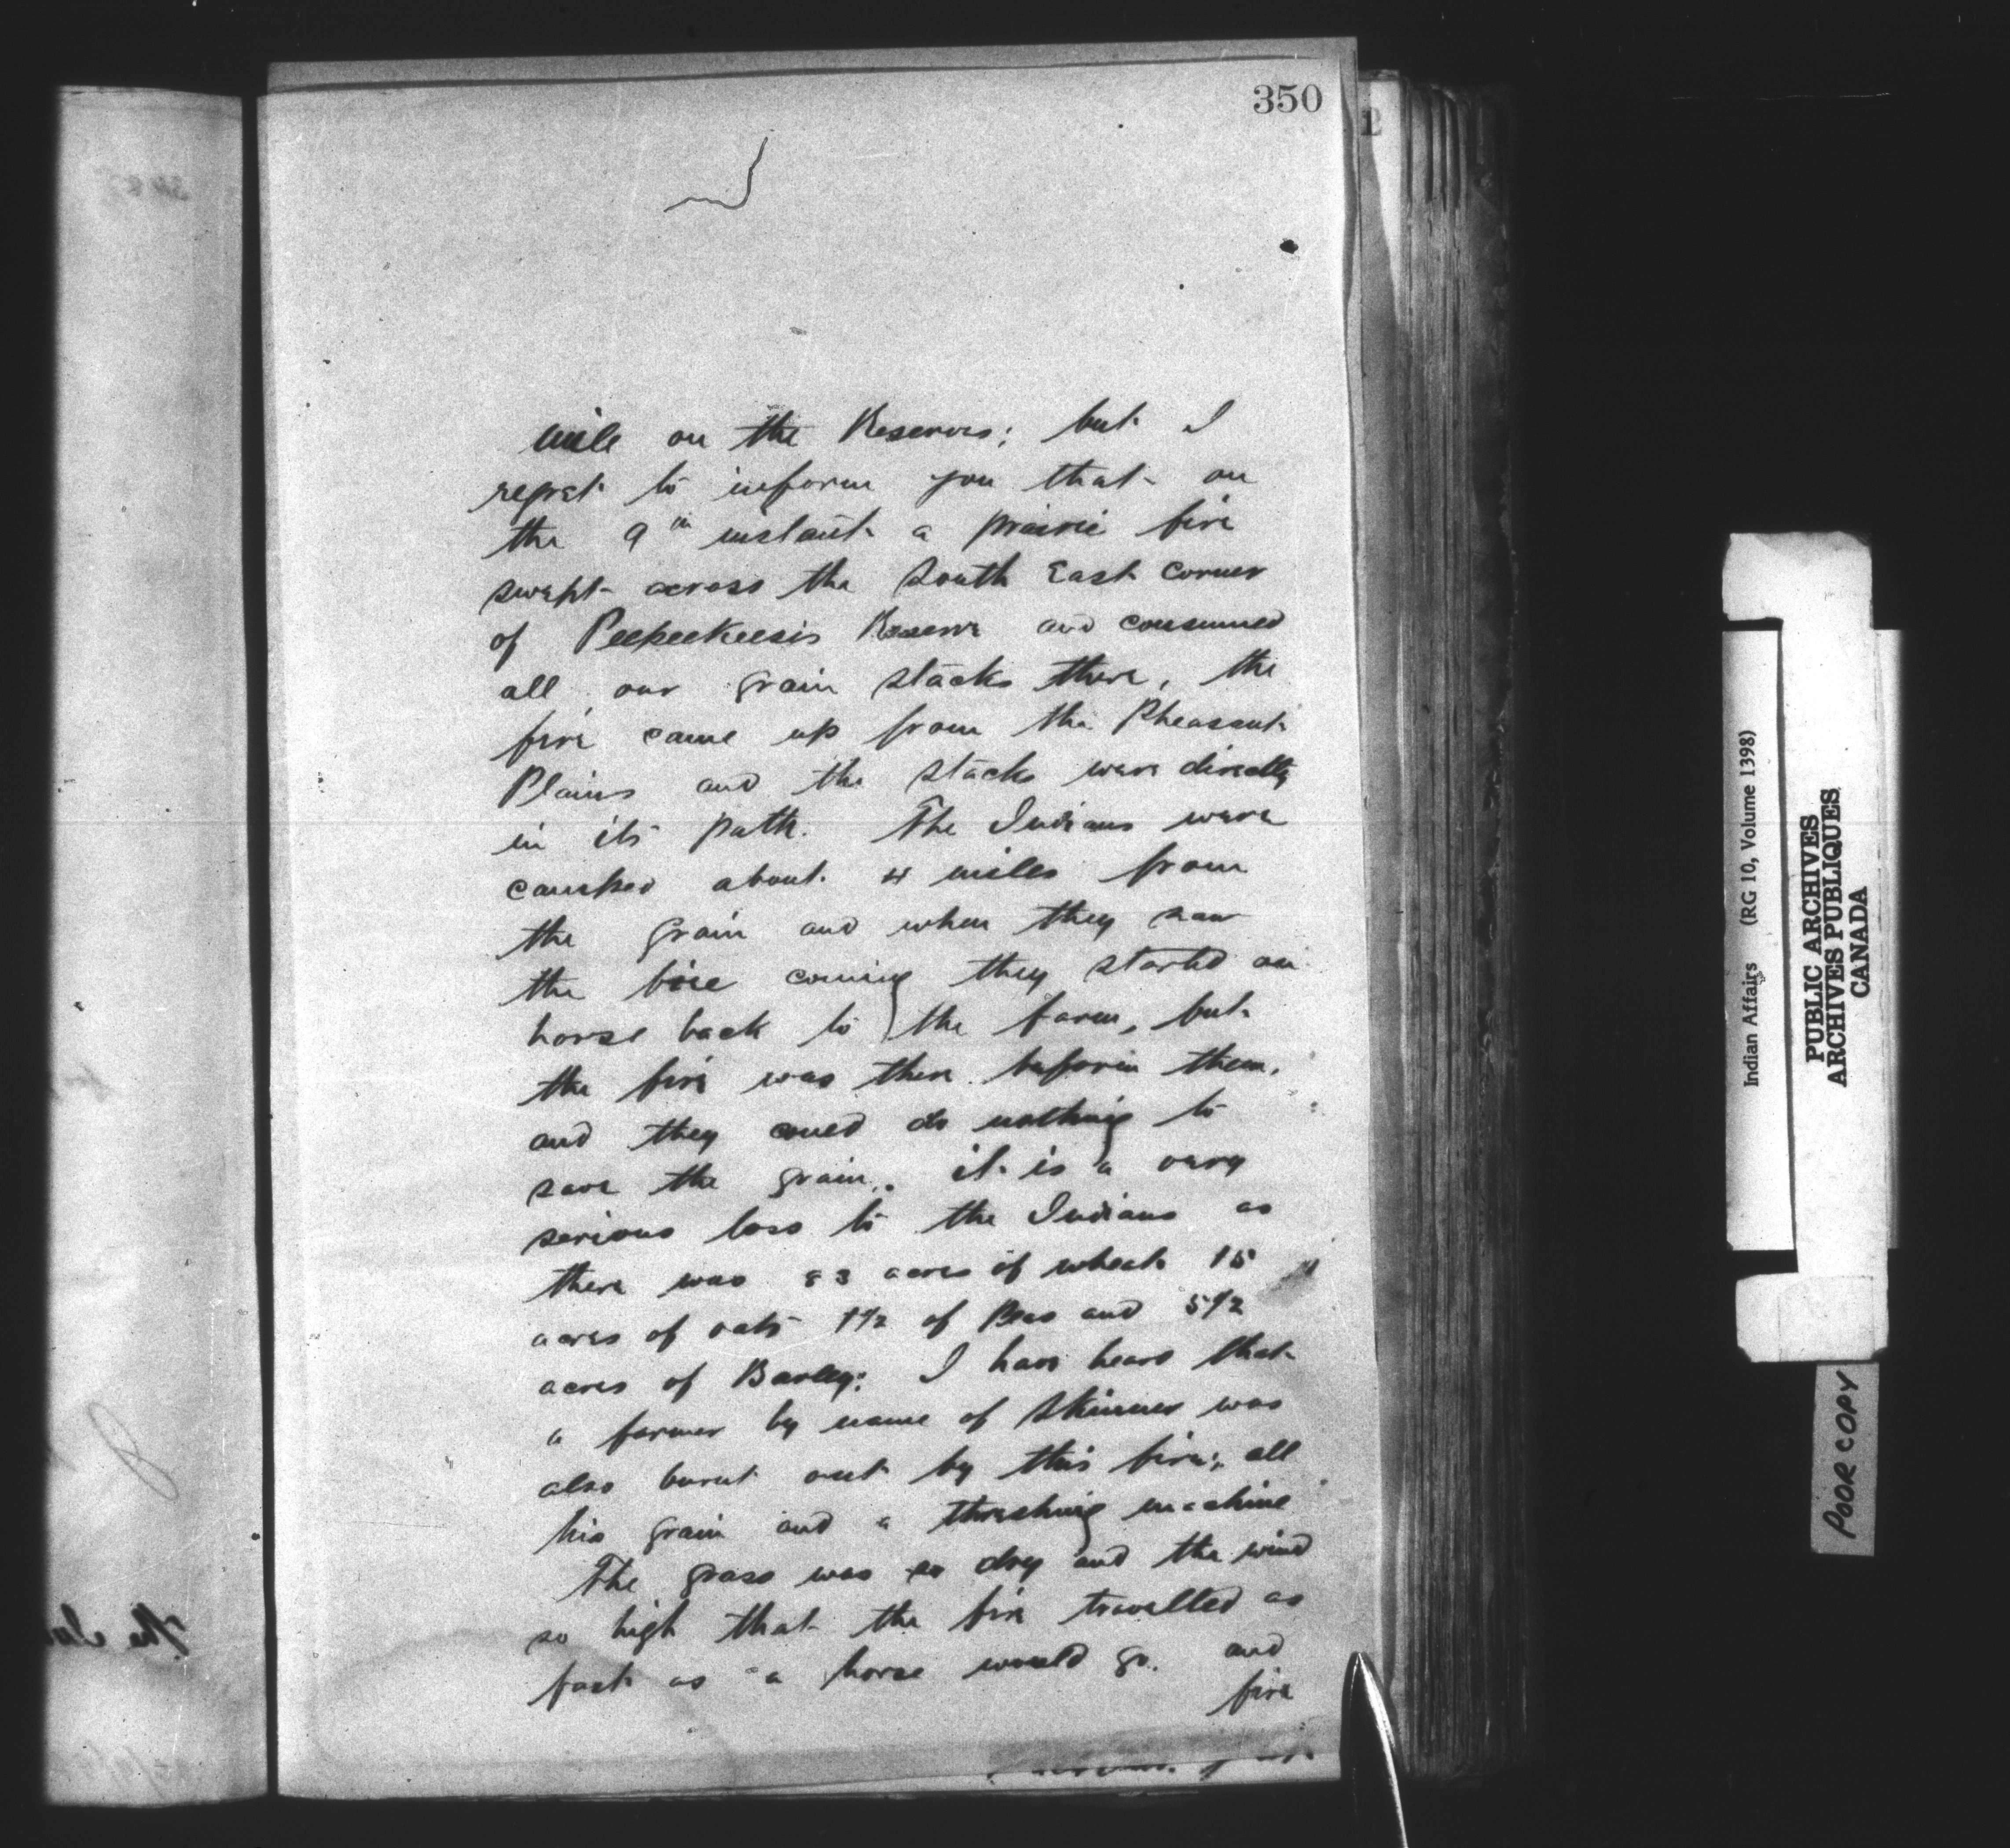 350
mile on the Reserves; but I
regret to inform you that on
the 9th instant a prairie fire
swept across the South East Corner
of Peepeekeesis Reserve and consumed
all our grain stacks there, the
fire came up from the Pheasant
Plains and the stacks were directly
in its path. The Indians were
camped about 4 miles from
the grain and when they saw
the fire coming they started on
horse back to the farm, but
the fire was there before them,
and they could do nothing to
save the grain. it is a very
serious loss to the Indians as
there was 83 acres of wheat 15
acres of oats 1 1/2 of Peas and 5 1/2
acres of Barley; I have heard that
a farmer by name of Skinner was
also burnt out by this fire; all
his grain and a threshing machine
The grass was so dry and the wind
so high that the fire travelled as
fast as a horse would go. and
fire
Indian Affairs (RG 10, Volume 1398)
PUBLIC ARCHIVES
ARCHIVES PUBLIQUES
CANADA
POOR COPY